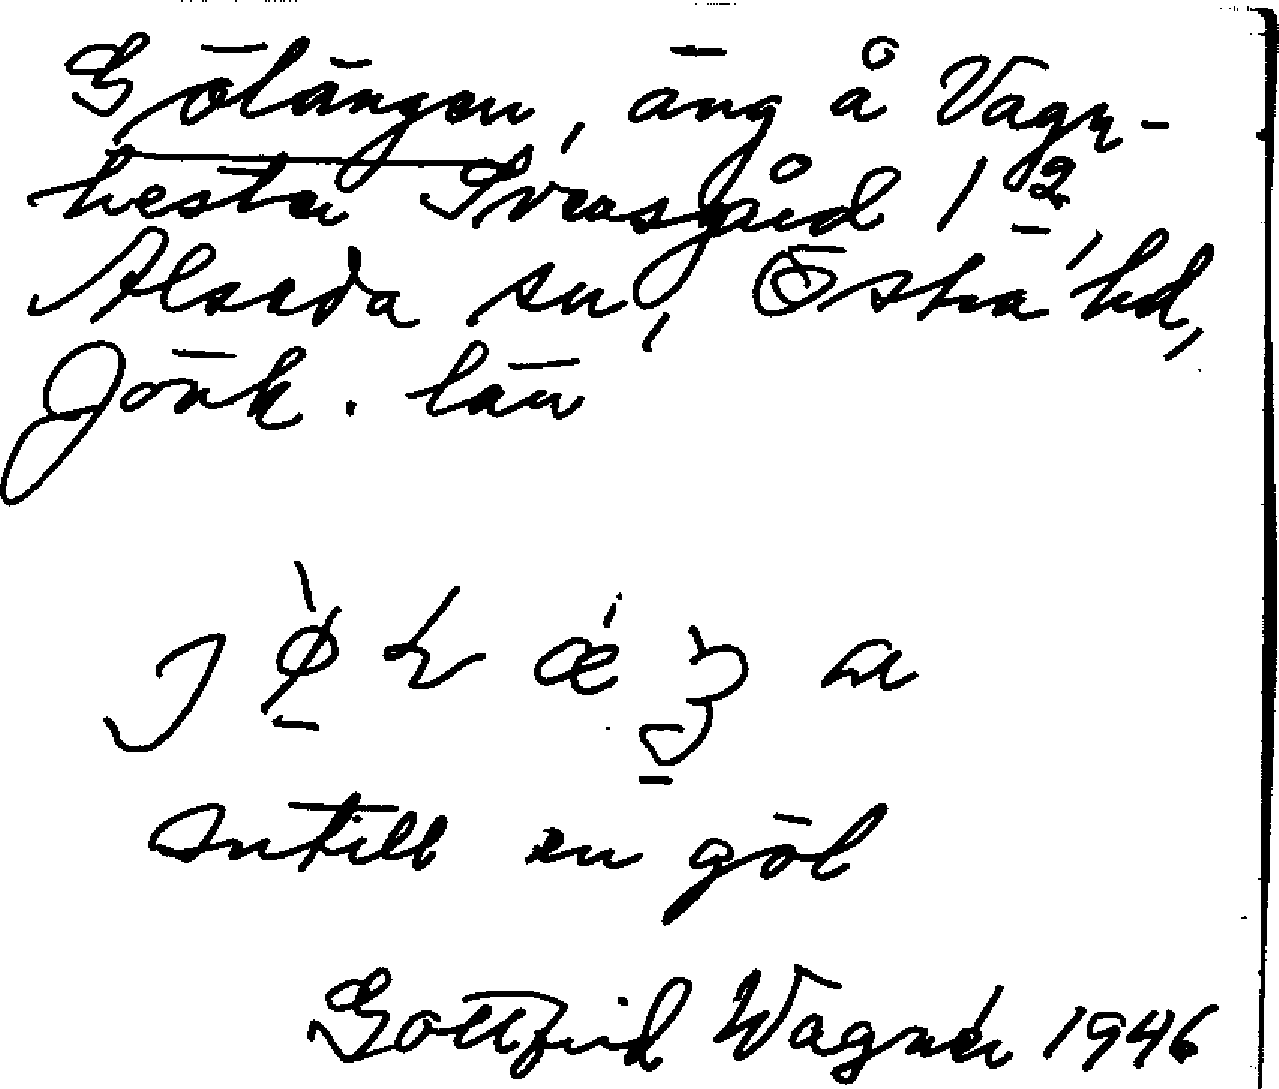 Gölängen, äng å Vagn-
hester Sveasgård 1²
Alseda sn, Östra hd,
Jönk. län
intill en göl
Gottfrid Wagnér 1946